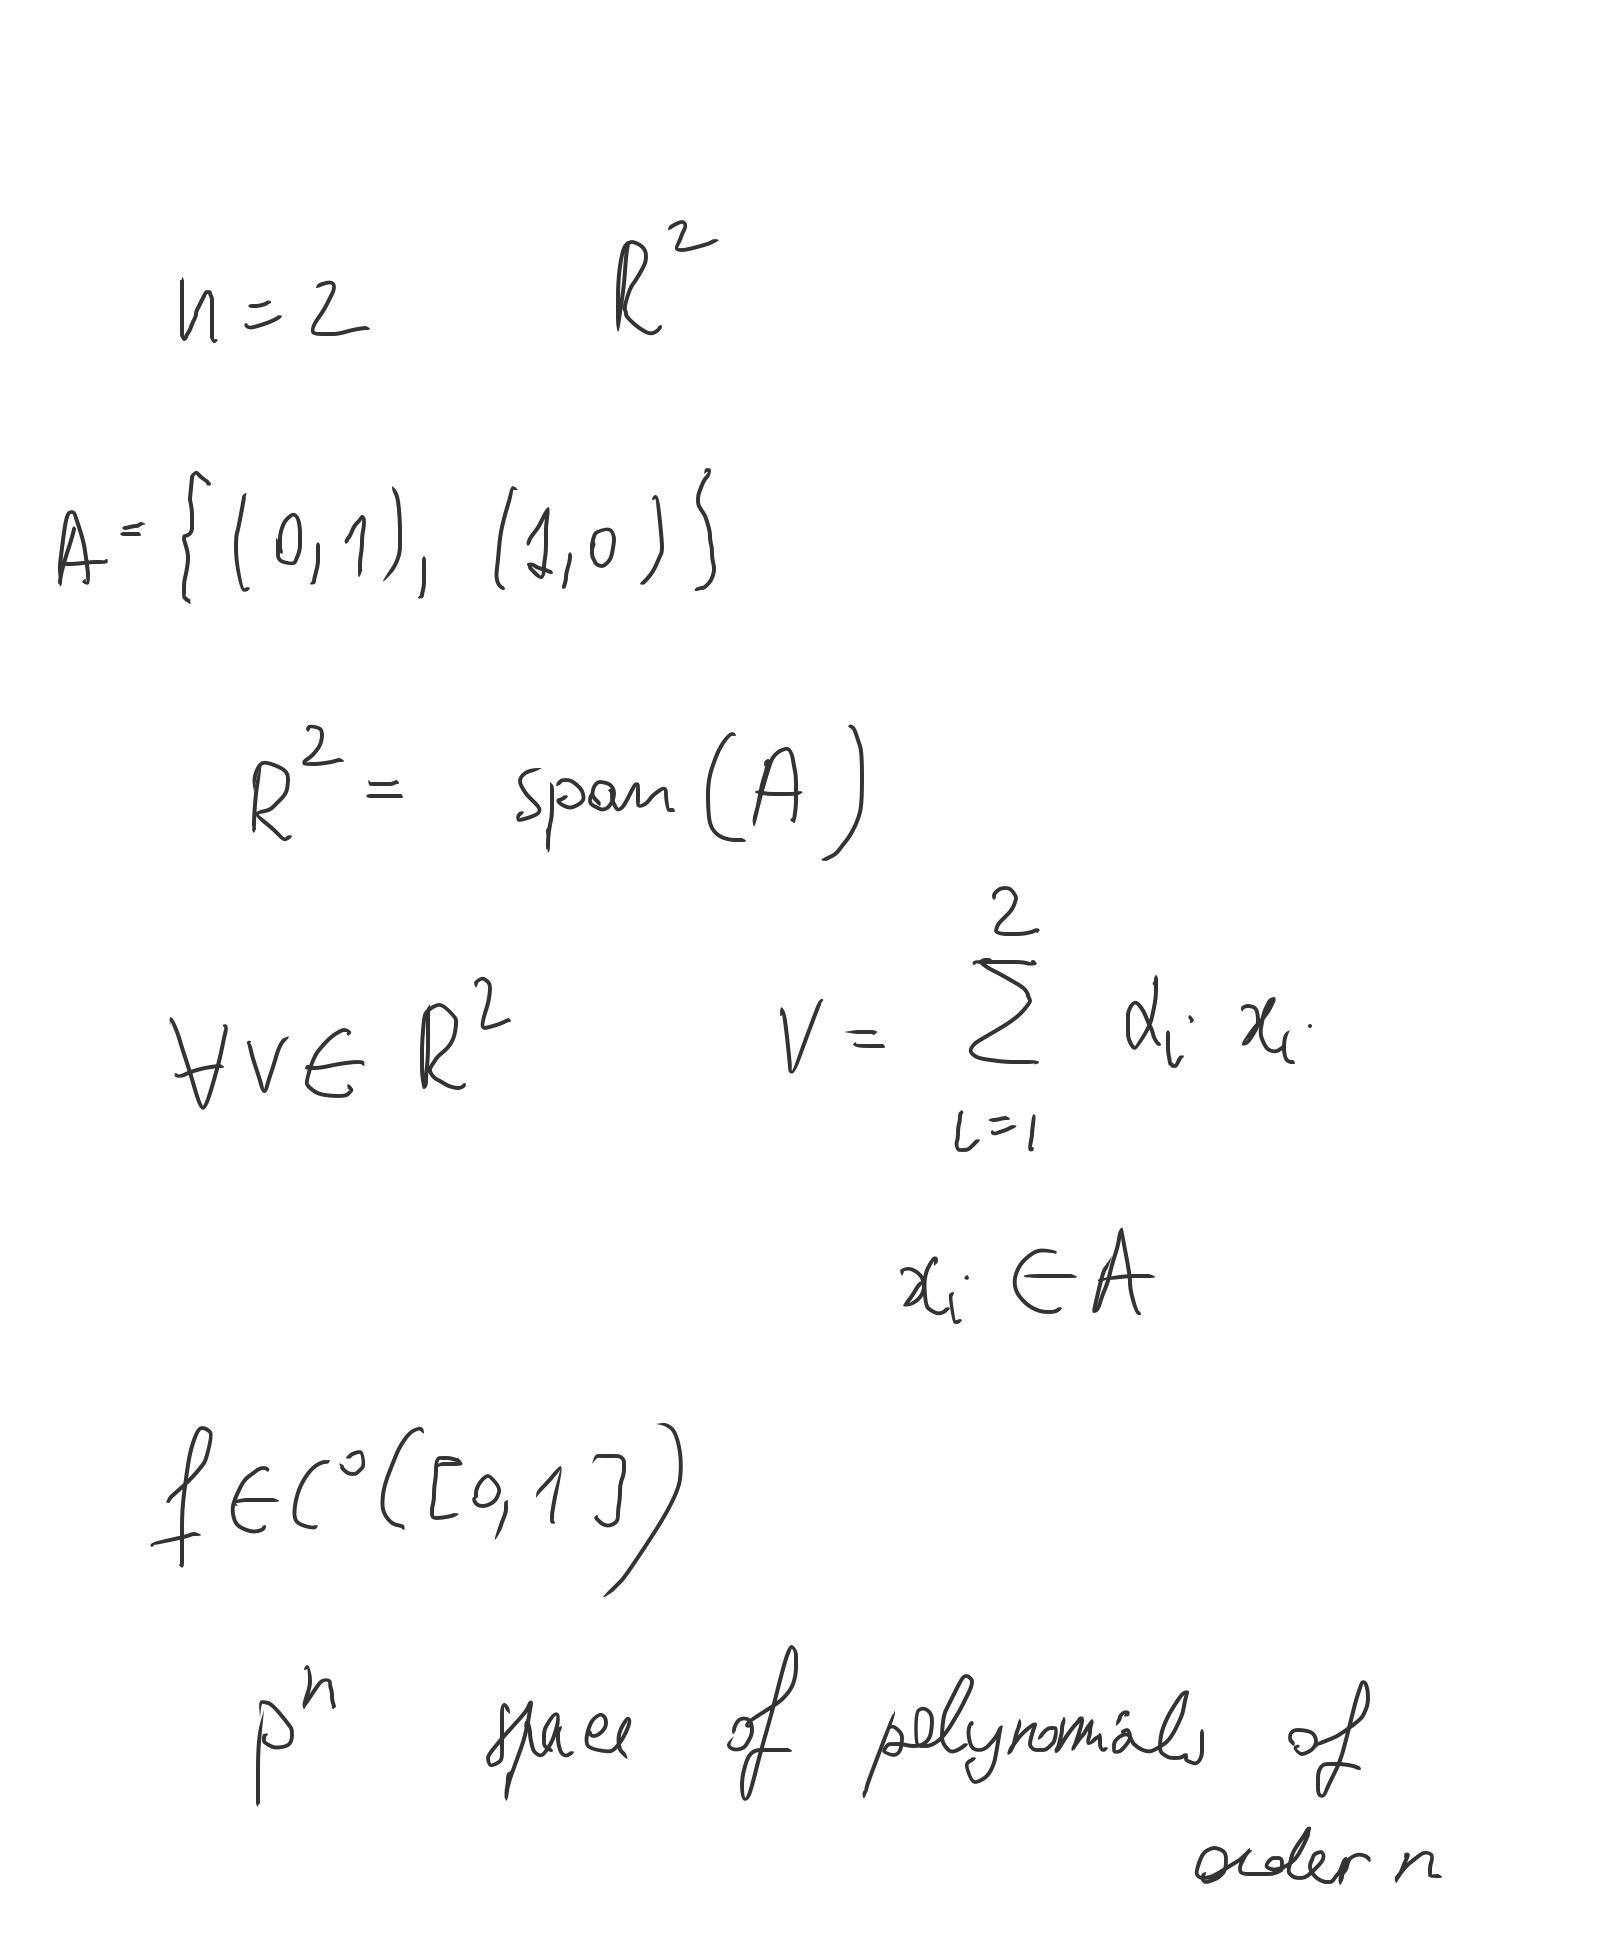 n=2 R²
A = {(0,1), (1,0)}
R² = span(A)
∀v∈ R² V = ∑_{i=1}^{2} α_i x_i
x_i ∈ A
f∈C⁰([0,1])
pⁿ space of polynomials of
order n